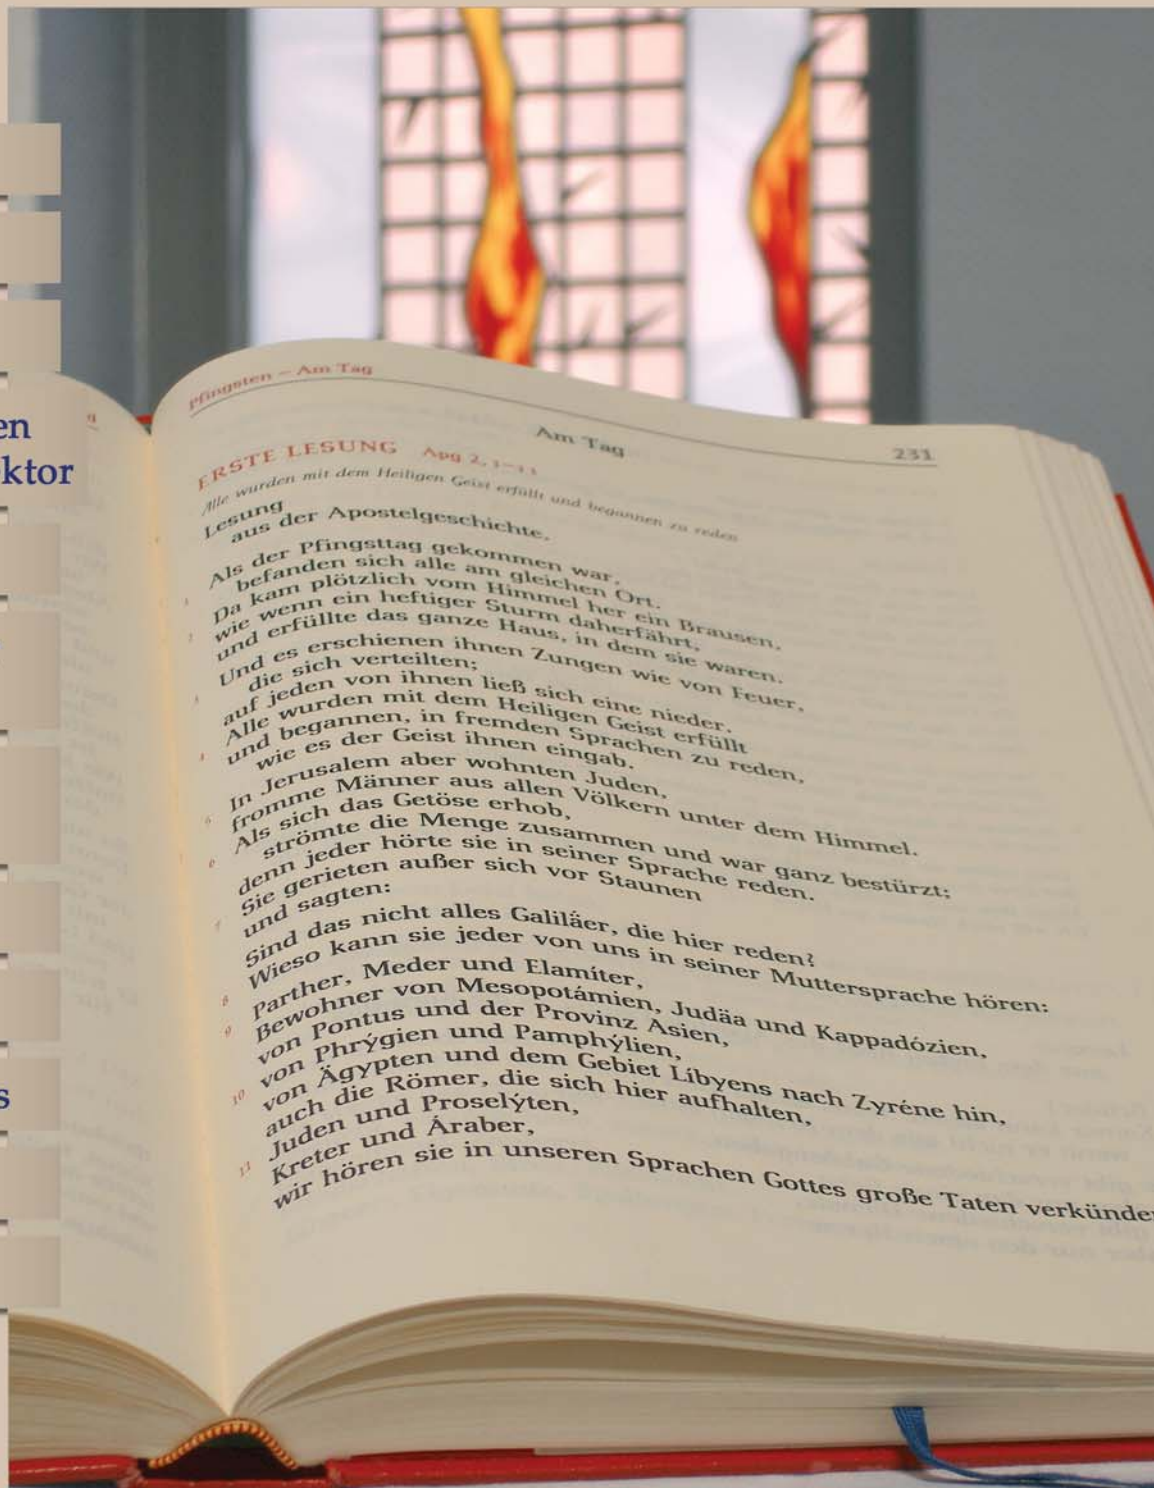 en
ktor
s
Pfingsten – Am Tag
Am Tag 231
ERSTE LESUNG Apg 2, 1–11
Alle wurden mit dem Heiligen Geist erfüllt und begannen zu reden
Lesung
aus der Apostelgeschichte.
1 Als der Pfingsttag gekommen war,
befanden sich alle am gleichen Ort.
2 Da kam plötzlich vom Himmel her ein Brausen,
wie wenn ein heftiger Sturm daherfährt,
und erfüllte das ganze Haus, in dem sie waren.
3 Und es erschienen ihnen Zungen wie von Feuer,
die sich verteilten;
auf jeden von ihnen ließ sich eine nieder.
4 Alle wurden mit dem Heiligen Geist erfüllt
und begannen, in fremden Sprachen zu reden,
wie es der Geist ihnen eingab.
5 In Jerusalem aber wohnten Juden,
fromme Männer aus allen Völkern unter dem Himmel.
6 Als sich das Getöse erhob,
strömte die Menge zusammen und war ganz bestürzt;
denn jeder hörte sie in seiner Sprache reden.
7 Sie gerieten außer sich vor Staunen
und sagten:
Sind das nicht alles Galiläer, die hier reden?
8 Wieso kann sie jeder von uns in seiner Muttersprache hören:
9 Parther, Meder und Elamíter,
Bewohner von Mesopotámien, Judäa und Kappadózien,
von Pontus und der Provinz Asien,
10 von Phrýgien und Pamphýlien,
von Ägypten und dem Gebiet Líbyens nach Zyréne hin,
auch die Römer, die sich hier aufhalten,
11 Juden und Proselýten,
Kreter und Áraber,
wir hören sie in unseren Sprachen Gottes große Taten verkünde